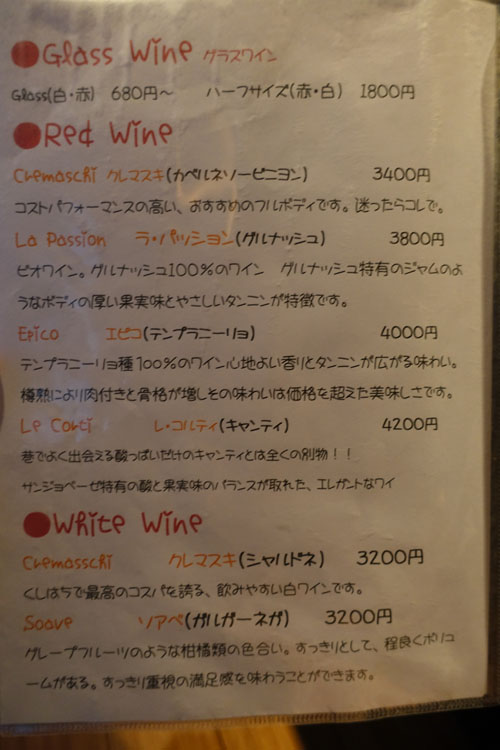 ●Glass Wine グラスワイン
Glass(白・赤) 680円～ ハーフサイズ(赤・白) 1800円
●Red Wine
Cremaschi クレマスキ(カベルネソービニヨン) 3400円
コストパフォーマンスの高い、おすすめのフルボディです。迷ったらコレで。
La Passion ラ・パッション(グルナッシュ) 3800円
ビオワイン。グルナッシュ100%のワイン グルナッシュ特有のジャムのよ
うなボディの厚い果実味とやさしいタンニンが特徴です。
Epico エピコ(テンプラニーリョ) 4000円
テンプラニーリョ種100%のワイン心地よい香りとタンニンが広がる味わい。
樽熟により肉付きと骨格が増しその味わいは価格を超えた美味しさです。
Le Corti レ・コルティ(キャンティ) 4200円
巷でよく出会える酸っぱいだけのキャンティとは全くの別物！！
サンジョベーゼ特有の酸と果実味のバランスが取れた、エレガントなワイ
●White Wine
Cremasschi クレマスキ(シャルドネ) 3200円
くしはちで最高のコスパを誇る、飲みやすい白ワインです。
Soave ソアベ(ガルガーネガ) 3200円
グレープフルーツのような柑橘類の色合い。すっきりとして、程良くボリュ
ームがある。すっきり重視の満足感を味わうことができます。